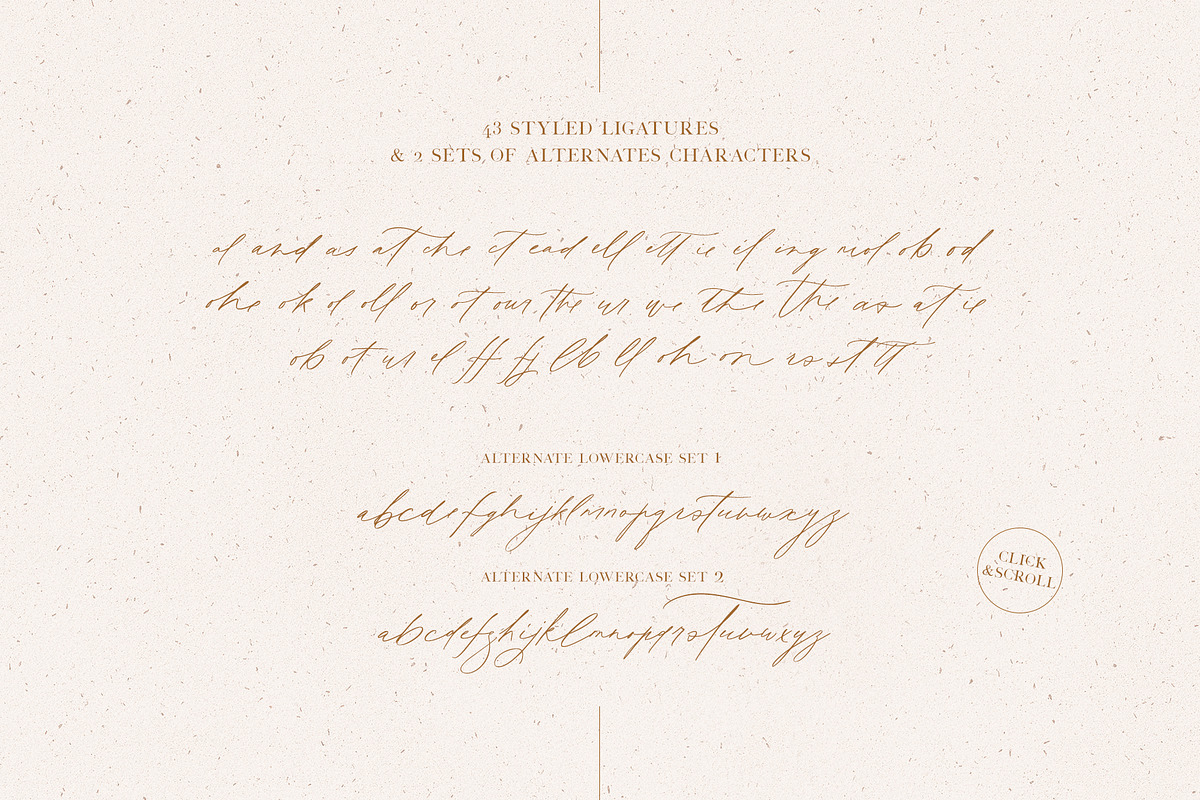 43 STYLED LIGATURES
& 2 SETS OF ALTERNATES CHARACTERS
al and as at che ct ead ell ett ie if ing ol ob od
ohe ok ol oll or ot our the ur we the the as at ie
ob ot us el ff fj lb ll oh on rs st tt
ALTERNATE LOWERCASE SET 1
abcdefghijklmnopqrstuvwxyz
ALTERNATE LOWERCASE SET 2
abcdefghijklmnopqrstuvwxyz
CLICK
&SCROLL